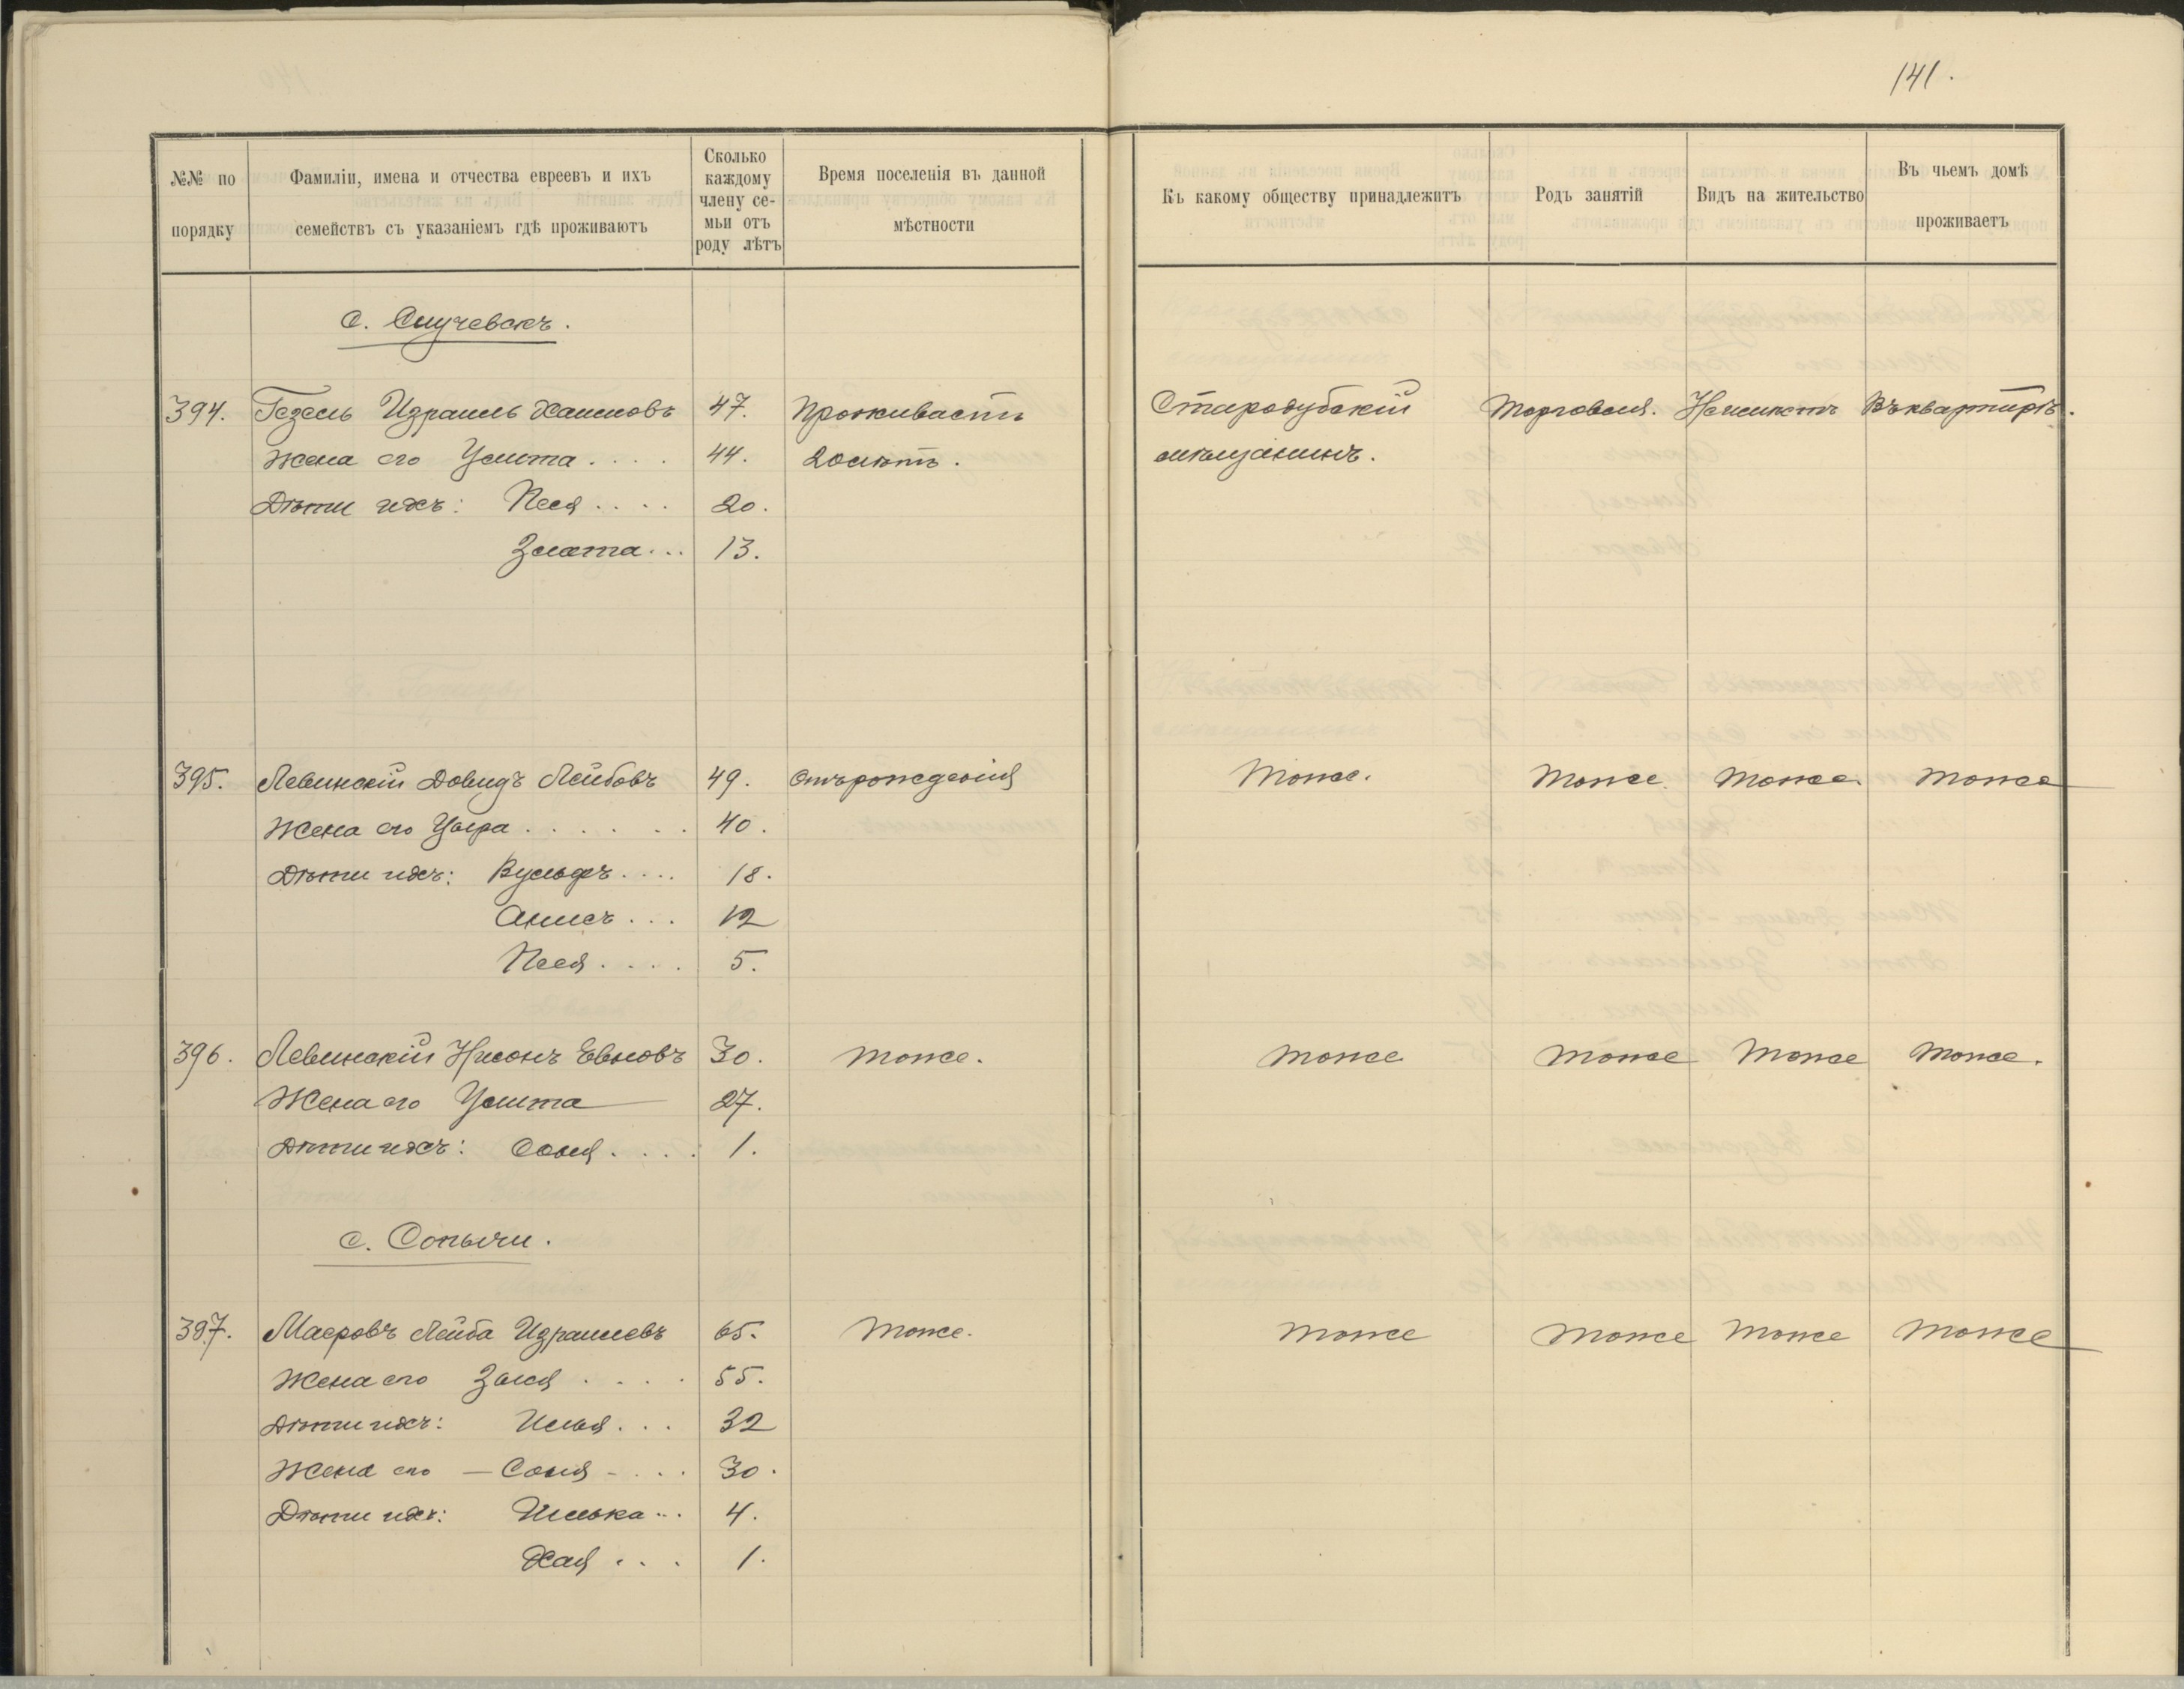 141.
№№ по порядку
Фамиліи, имена и отчества евреевъ и ихъ семействъ съ указаніемъ гдѣ проживаютъ
Сколько каждому члену се-мьи отъ роду лѣтъ
Время поселенія въ данной мѣстности
Къ какому обществу принадлежитъ
Родъ занятій
Видъ на жительство
Въ чьемъ домѣ проживаетъ
с. Случевскъ.
394. Гезель Израиль Хаимовъ 47. Проживаетъ Стародубскій Торговля. Неимѣетъ Въ квартирѣ.
Жена его Улита .... 44. 20 лѣтъ. мѣщанинъ.
Дѣти ихъ: Песя .... 20.
Злата ... 13.
395. Левинскій Довидъ Лейбовъ 49. Отъ рожденія Тоже. Тоже. Тоже. Тоже
Жена его 40.
Дѣти ихъ: Вульфъ .... 18.
12
Песя .... 5.
396. Левинскій Нисонъ Евновъ 30. Тоже. Тоже Тоже Тоже Тоже.
Жена его Улита 27.
Дѣти ихъ: Соня .... 1.
с. Сопычи.
397. Маеровъ Лейба Израилевъ 65. Тоже. Тоже Тоже Тоже Тоже
Жена его Зися .... 55.
Дѣти ихъ: Илья ... 32
Жена его — Соня - ... 30.
Дѣти ихъ: 4.
Хая ... 1.